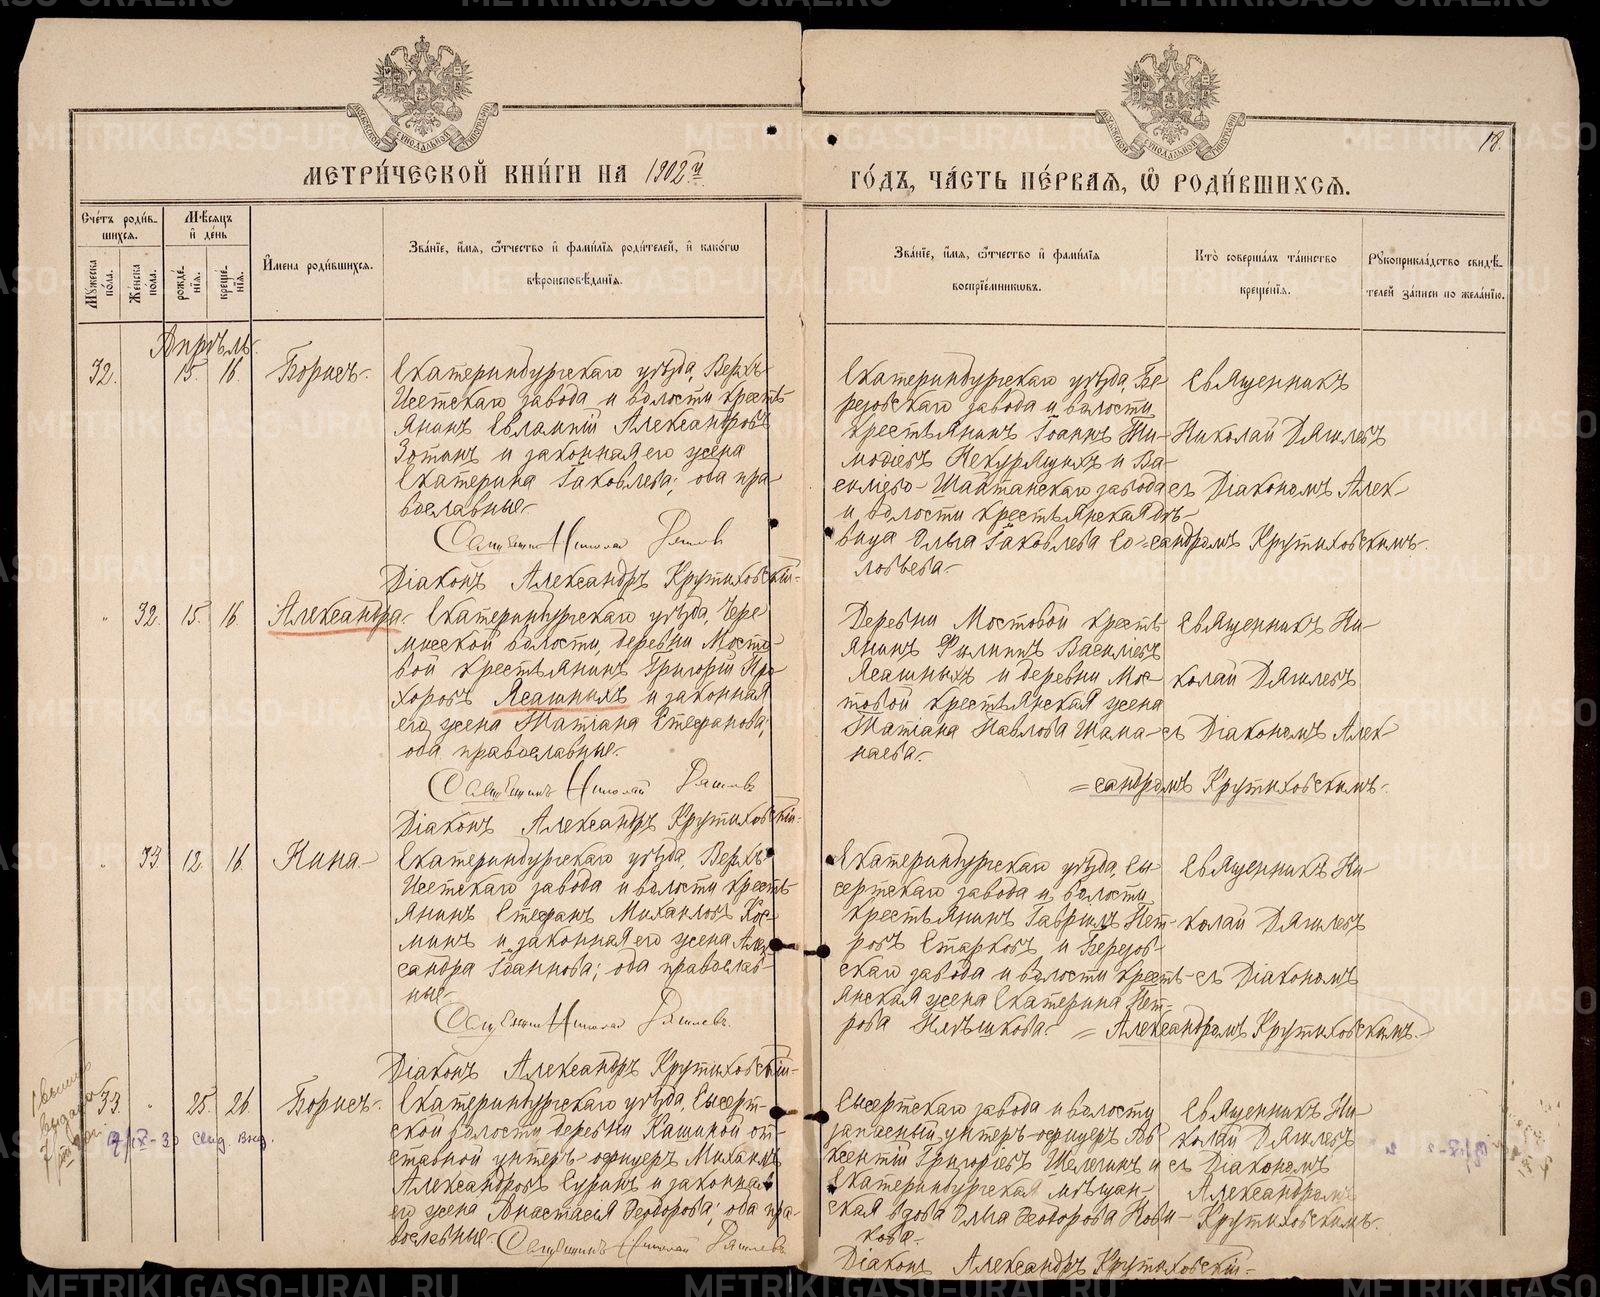 МЕТРИ́ЧЕСКОЙ КНИ́ГИ НА 1902й
ГО́ДЪ, ЧА́СТЬ ПЕ́РВАЯ, Ѡ҆ РОДИ́ВШИХСЯ.
18.
Сче́тъ роди́в-
шихся.
Мꙋ́жеска
по́ла.
Же́нска
по́ла.
Мѣ́сяцъ
и҆ де́нь
рожде́-
нїѧ.
креще́-
нїѧ.
И҆мена̀ роди́вшихся.
Зва́нїе, и҆́мя, ѻ҆́тчество и҆ фами́лїя роди́телей, и҆ како́гѡ
вѣроисповѣ́данїя.
Зва́нїе, и҆́мя, ѻ҆́тчество и҆ фами́лїя
воспрїе́мникѡвъ.
Кто̀ соверша́лъ та́инство
креще́нїя.
Рꙋкоприкла́дство свидѣ́-
телей за́писи по жела́нїю.
Апрѣль.
32. 15. 16. Борисъ.
Екатеринбургскаго уѣзда, Верхъ-
Исетскаго завода и волости кресть-
янинъ Евлампій Александровъ
Зотинъ и законная его жена
Екатерина Іаковлева; оба пра-
вославные.
Священникъ Николай Дягилевъ
Діаконъ Александръ Крутиховскій.
Екатеринбургскаго уѣзда, Бе-
резовскаго завода и волости
крестьянинъ Іоаннъ Ти-
моѳеевъ и Ва-
сильево-Шайтанскаго завода
и волости крестьянская дѣ-
вица Ольга Іаковлева Со-
ловьева.
Священникъ
Николай Дягилевъ
съ Діакономъ Алек-
сандромъ Крутиховскимъ.
" 32. 15. 16. Александра.
Екатеринбургскаго уѣзда, Чере-
мисской волости, деревни Мосто-
вой крестьянинъ Григорій Про-
хоровъ Ясашныхъ и законная
его жена Татіана Стефанова;
оба православные.
Священникъ Николай Дягилевъ
Діаконъ Александръ Крутиховскій.
Деревни Мостовой кресть-
янинъ Филиппъ Васильевъ
Ясашныхъ и деревни Мос-
товой крестьянская жена
Татіана Павлова Шама-
наева.
Священникъ Ни-
колай Дягилевъ
съ Діакономъ Алек-
=сандромъ Крутиховскимъ.
" 33. 12. 16. Нина.
Екатеринбургскаго уѣзда, Верхъ-
Исетскаго завода и волости кресть-
янинъ Стефанъ Михаиловъ Кос-
минъ и законная его жена Алек-
сандра Іоаннова; оба православ-
ные.
Священникъ Николай Дягилевъ.
Діаконъ Александръ Крутиховскій.
Екатеринбургскаго уѣзда, Сы-
сертскаго завода и волости
крестьянинъ Гавріилъ Пет-
ровъ Старковъ и Березов-
скаго завода и волости кресть-
янская жена Екатерина Пет-
рова Клѣшкова.
Священникъ Ни-
колай Дягилевъ
съ Діакономъ
= Александромъ Крутиховскимъ.
33. " 25. 26. Борисъ.
Екатеринбургскаго уѣзда, Сысерт-
ской волости, деревни Кашиной от-
ставной унтеръ-офицеръ Михаилъ
Александровъ Суринъ и законная
его жена Анастасія Ѳеодорова; оба пра-
вославные.
Священникъ Николай Дягилевъ
Сысертскаго завода и волости
запасный унтеръ-офицеръ Ав-
ксентій Григоріевъ Шелегинъ и
Екатеринбургская мѣщан-
ская вдова Ольга Ѳеодорова Нови-
кова.
Священникъ Ни-
колай Дягилевъ
съ Діакономъ
Александромъ
Крутиховскимъ.
Діаконъ Александръ Крутиховскій.
METRIKI.GASO-URAL.RU